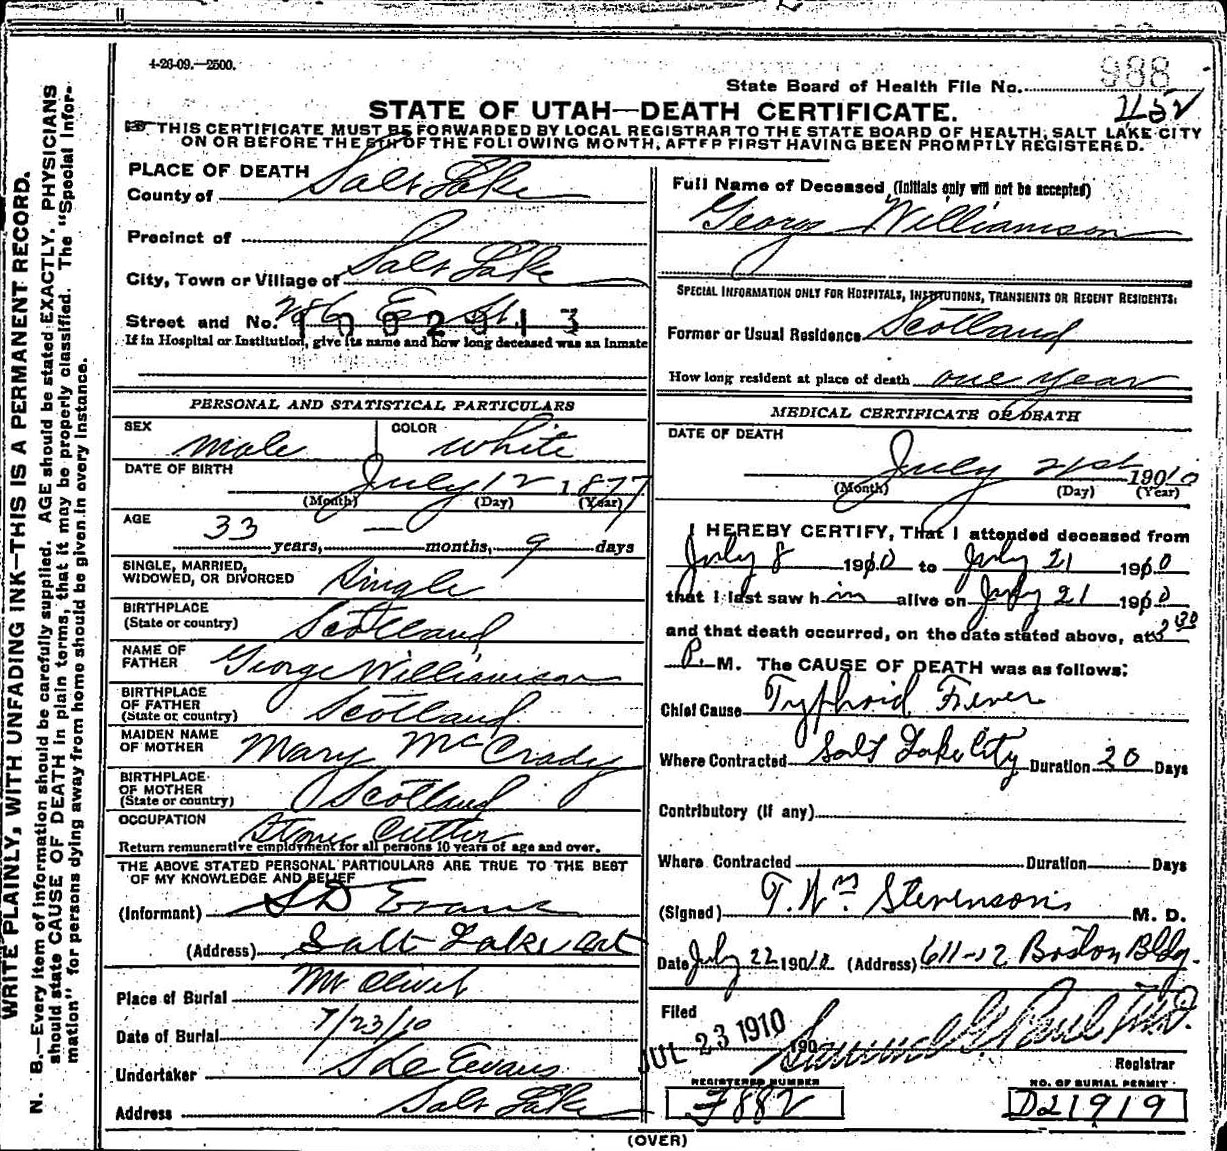 4-26-09.—2500.
988
State Board of Health File No.
1152
STATE OF UTAH—DEATH CERTIFICATE.
THIS CERTIFICATE MUST BE FORWARDED BY LOCAL REGISTRAR TO THE STATE BOARD OF HEALTH, SALT LAKE CITY
ON OR BEFORE THE 5TH OF THE FOLLOWING MONTH, AFTER FIRST HAVING BEEN PROMPTLY REGISTERED.
WRITE PLAINLY, WITH UNFADING INK—THIS IS A PERMANENT RECORD.
N. B.—Every item of information should be carefully supplied. AGE should be stated EXACTLY. PHYSICIANS
should state CAUSE OF DEATH in plain terms, that it may be properly classified. The "Special Infor-
mation" for persons dying away from home should be given in every instance.
PLACE OF DEATH
County of Salt Lake
Precinct of
City, Town or Village of Salt Lake
Street and No. 286 E St.
1002913
If in Hospital or Institution, give its name and how long deceased was an Inmate
PERSONAL AND STATISTICAL PARTICULARS
SEX male COLOR white
DATE OF BIRTH July 12 1877
(Month) (Day) (Year)
AGE 33 years, — months, 9 days
SINGLE, MARRIED,
WIDOWED, OR DIVORCED Single
BIRTHPLACE
(State or country) Scotland
NAME OF
FATHER George Williamson
BIRTHPLACE
OF FATHER
(State or country) Scotland
MAIDEN NAME
OF MOTHER Mary McCrady
BIRTHPLACE
OF MOTHER
(State or country) Scotland
OCCUPATION Stone Cutter
Return remunerative employment for all persons 10 years of age and over.
THE ABOVE STATED PERSONAL PARTICULARS ARE TRUE TO THE BEST
OF MY KNOWLEDGE AND BELIEF
(Informant) S D Evans
(Address) Salt Lake
Place of Burial Mt Olivet
Date of Burial 7/23/10
Undertaker Evans
Address Salt Lake
Full Name of Deceased (Initials only will not be accepted)
George Williamson
SPECIAL INFORMATION ONLY FOR HOSPITALS, INSTITUTIONS, TRANSIENTS OR RECENT RESIDENTS:
Former or Usual Residence Scotland
How long resident at place of death one year
MEDICAL CERTIFICATE OF DEATH
DATE OF DEATH
July 21st 19010
(Month) (Day) (Year)
I HEREBY CERTIFY, That I attended deceased from
July 8 1910 to July 21 1910
that I last saw him alive on July 21 1910
and that death occurred, on the date stated above, at 3 30
P. M. The CAUSE OF DEATH was as follows:
Chief Cause Typhoid Fever
Where Contracted Salt Lake City Duration 20 Days
Contributory (if any)
Where Contracted Duration Days
(Signed) T. Wm Stevenson M. D.
Date July 22 19010 (Address) 611-12 Boston Bldg.
Filed JUL 23 1910 190 Samuel G Paul M.D.
Registrar
REGISTERED NUMBER
F882
NO. OF BURIAL PERMIT
D21919
(OVER)